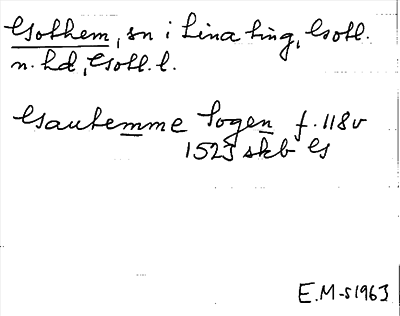 Gothem, sn i Lina ting, Gotl.
n. hd, Gotl. l.
Gautemme Sogen f. 118 v
1523 skb G
E.M-s 1963